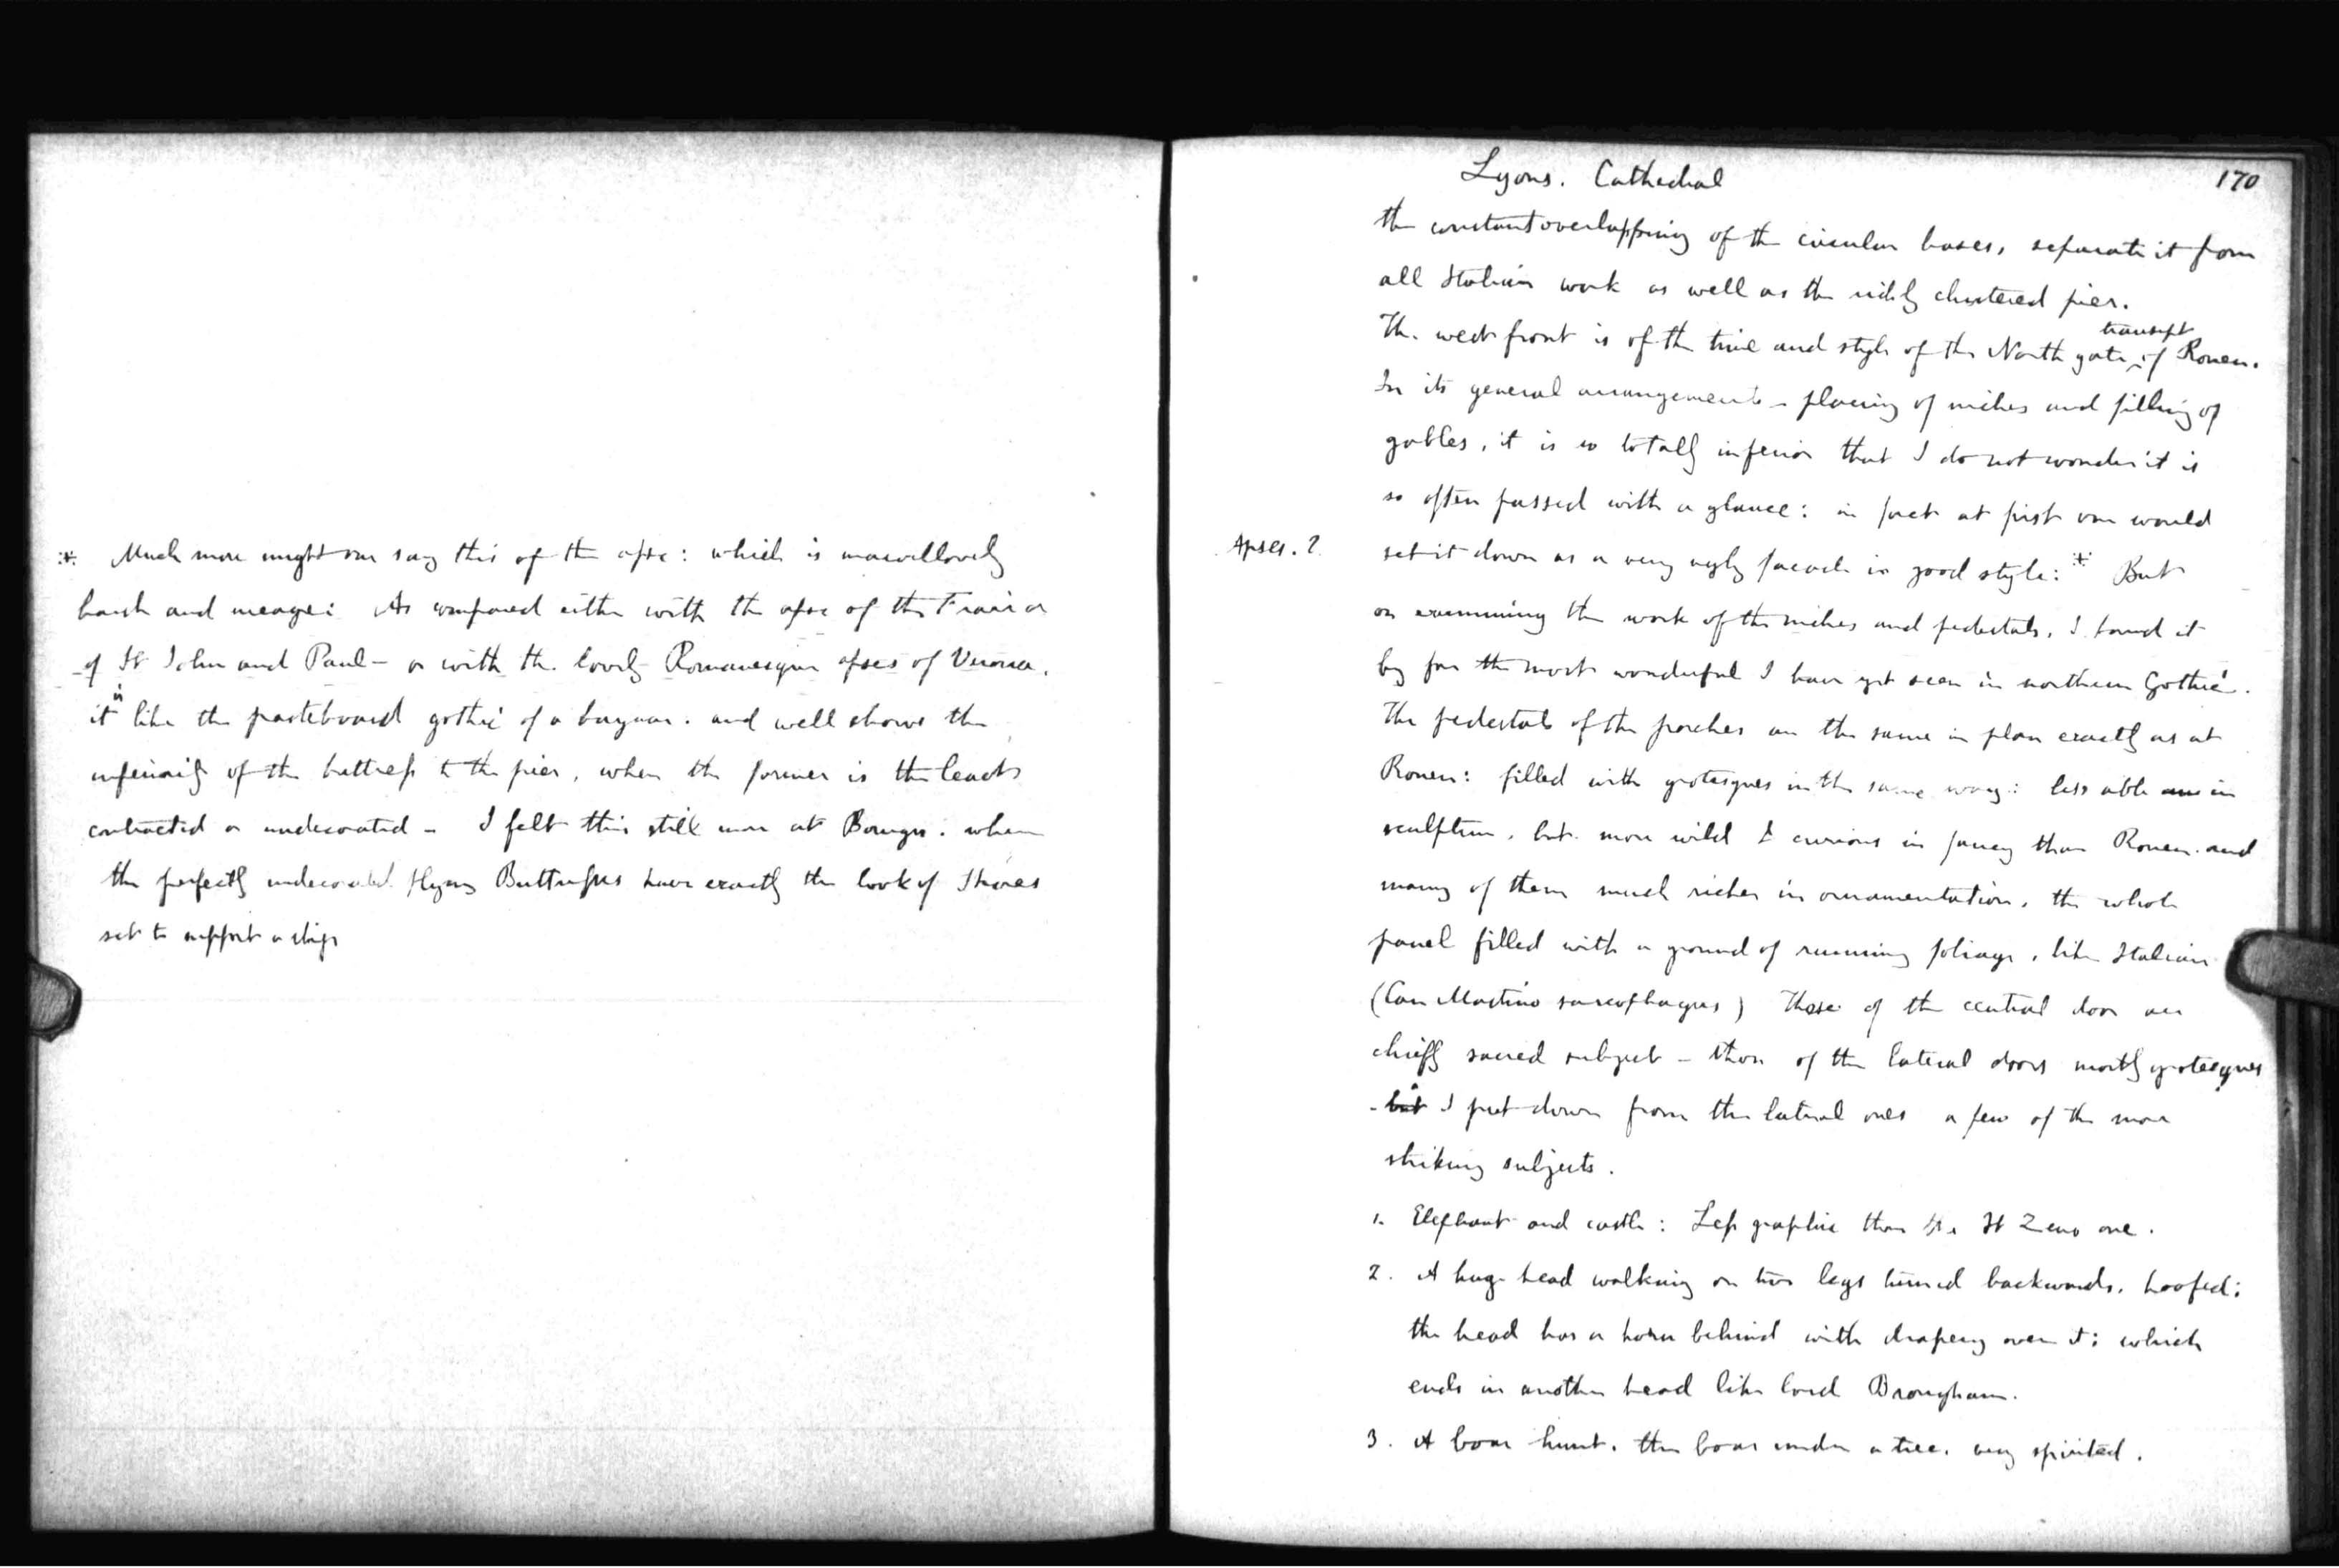 * Much more might one say this of the apse: which is marvellously
harsh and meagre: As compared either with the apse of the Frari or
of St John and Paul - or with the lovely Romanesque apses of Verona,
it is like the pasteboard gothic of a bazaar. and well shows the
inferiority of the buttress to the pier, when the former is the least
contracted or undecorated - I felt this still more at Bourges: where
the perfectly undecorated flying Buttresses have exactly the look of Shores
set to support a ship
Lyons. Cathedral
170
the constant overlapping of the circular bases, separate it from
all Italian work as well as the richly clustered pier.
The west front is of the time and style of the North gate transept of Rouen.
In its general arrangements - placing of niches and filling of
gables, it is so totally inferior that I do not wonder it is
so often passed with a glance: in fact at first one would
Apses. 2.
set it down as a very ugly facade in good style: * But
on examining the work of the niches and pedestals, I found it
by far the most wonderful I have yet seen in northern Gothic.
The pedestals of the porches are the same in plan exactly as at
Rouen: filled with grotesques in the same way: less able in
sculpture, but more wild & curious in fancy than Rouen. and
many of them much richer in ornamentation, the whole
panel filled with a ground of running foliage, like Italian
(Can Mastino sarcophagus) Those of the central door are
chiefly sacred subject - those of the lateral doors mostly grotesques
- but I put down from the lateral ones a few of the more
striking subjects.
1. Elephant and castle: Less graphic than the St Zeno one.
2. A huge head walking on two legs turned backwards, hoofed:
the head has a horn behind with drapery over it: which
ends in another head like lord Brougham.
3. A boar hunt. the boar under a tree. very spirited.